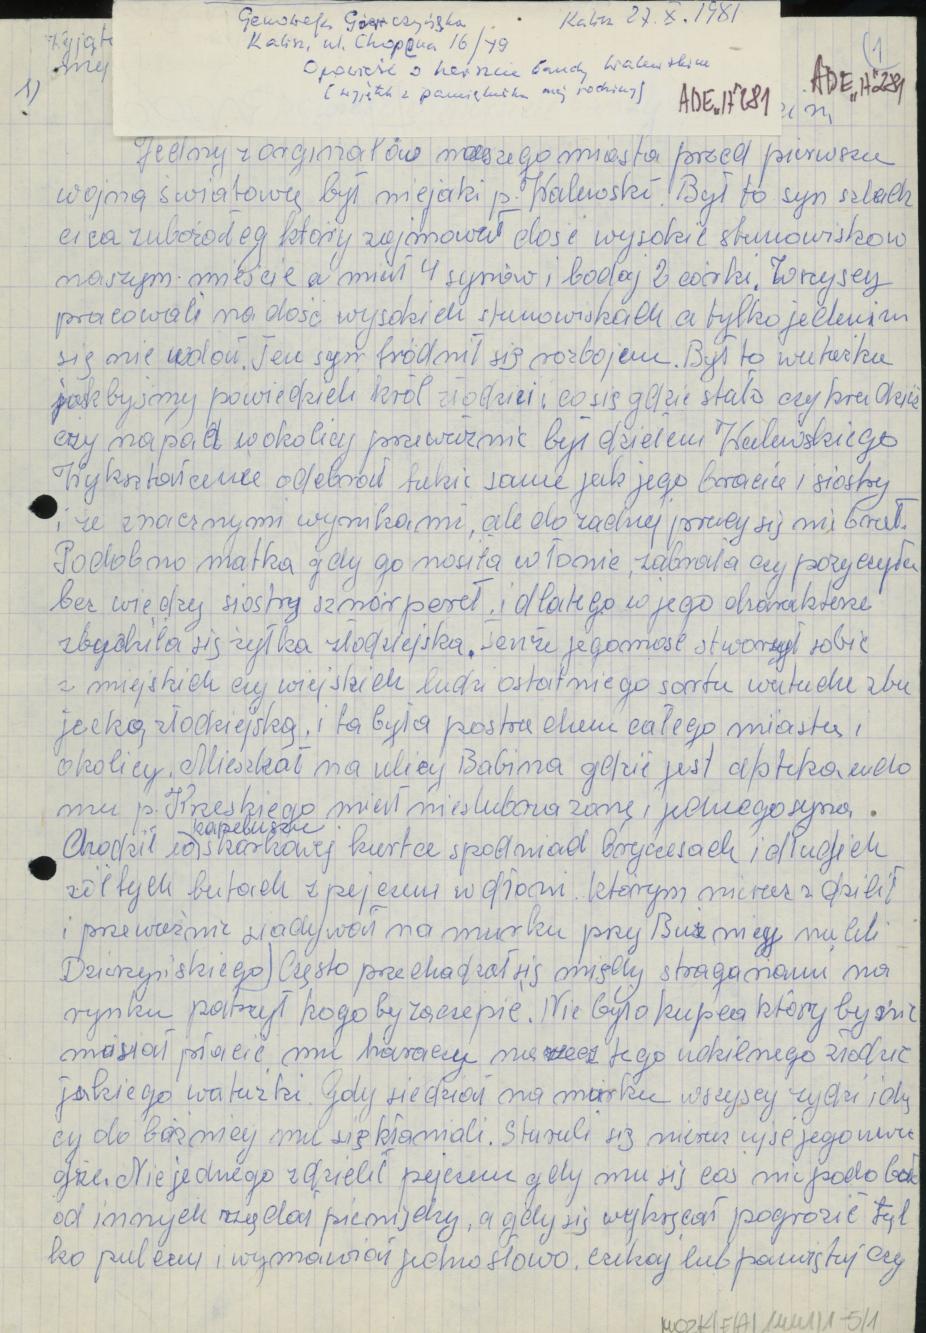 Genowefa Kalisz 27.X.1981
Kalisz, ul. Chopena 16/79
Opowieść o herszcie bandy
(wyjątek z pamiętnika mej rodziny)
ADE „H" 281
ADE „H" 281
(1
1)
Jedny z orginałów naszego miasta przed pierwszu
wojną światową był niejaki p. Był to syn szlach
cica zubożałeg który zajmował dość wysokie stanowisko w
naszym mieście a miał 4 synów i bodaj 2 córki. Wszyscy
pracowali na dość wysokich stanowiskach a tylko jeden im
się nie udał. Ten syn tródnił się rozbojem. Był to watażka
jakbyśmy powiedzieli król złodziei i co się gdzie stało czy kradzież
czy napad w okolicy przeważnie był dziełem
Wykształcenie odebrał takie same jak jego bracia i siostry
i ze znacznymi wynikami, ale do żadnej pracy się nie brał.
Podobno matka gdy go nosiła w łonie, zabrała czy pożyczyła
bez wiedzy siostry sznór pereł, i dlatego w jego charakterze
się żyłka złodziejska. Tenże jegomość stworzył sobie
z miejskich czy wiejskich ludzi ostatniego sortu watachę zbu
jecką złodziejską, i ta była postrachem całego miasta i
okolicy. Mieszkał na ulicy Babina gdzie jest apteka w do
mu p. miał nieślubna żonę i jednego syna.
kapeluszu
Chodził w skórkowej kurtce spodniach bryczesach i długich
żółtych butach z pejczem w dłoni. Którym nieraz zdzielił
i przeważnie siadywał na murku przy Bużnicy na uli
Często przechadzał się między straganami na
rynku patrzył kogo by zaczepić. Nie było kupca który by nie
musiał płacić mu haraczy na rzecz tego udzielnego złodzie
jskiego watażki. Gdy siedział na murku wszyscy żydzi idą
cy do bóżnicy mu się kłaniali. Starali się nieraz ujść jego uwa
dze. Nie jednego zdzielił pejczem gdy mu się coś nie podobało
od innych żądał pieniędzy, a gdy się wykręcał pogroził tyl
ko palcem i wymawiał jedno słowo. czekaj lub pamiętaj czy